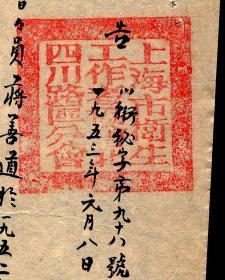 告
川衛秘字第九十八號
一九五三年元月八日
員蔣善道於一九五二
上海市衛生
工作者
四川路區分會